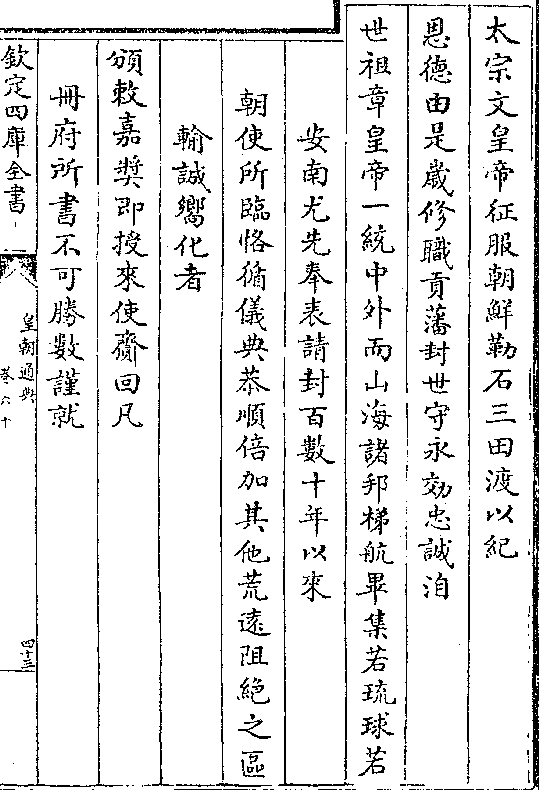 太宗文皇帝征服朝鮮勒石三田渡以紀
恩德由是歲修職貢藩封世守永効忠誠洎
世祖章皇帝一統中外而山海諸邦梯航畢集若琉球若
安南尤先奉表請封百數十年以來
朝使所臨恪循儀典恭順倍加其他荒遠阻絶之區
輸誠嚮化者
頒敕嘉奬即授來使齎回凡
冊府所書不可勝數謹就
欽定四庫全書
皇朝通典
卷六十
四十三